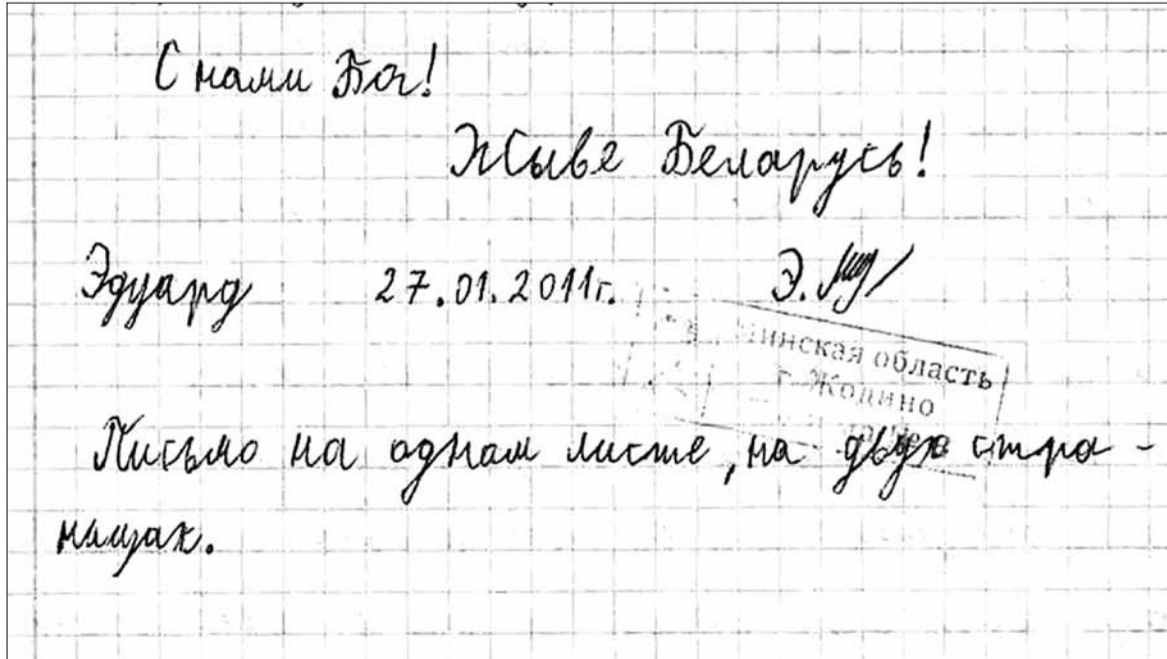 С нами Бог!
Жыве Беларусь!
Эдуард 27.01.2011г. Э.
Минская область
г. Жодино
Письмо на одном листе, на двух стра-
ницах.